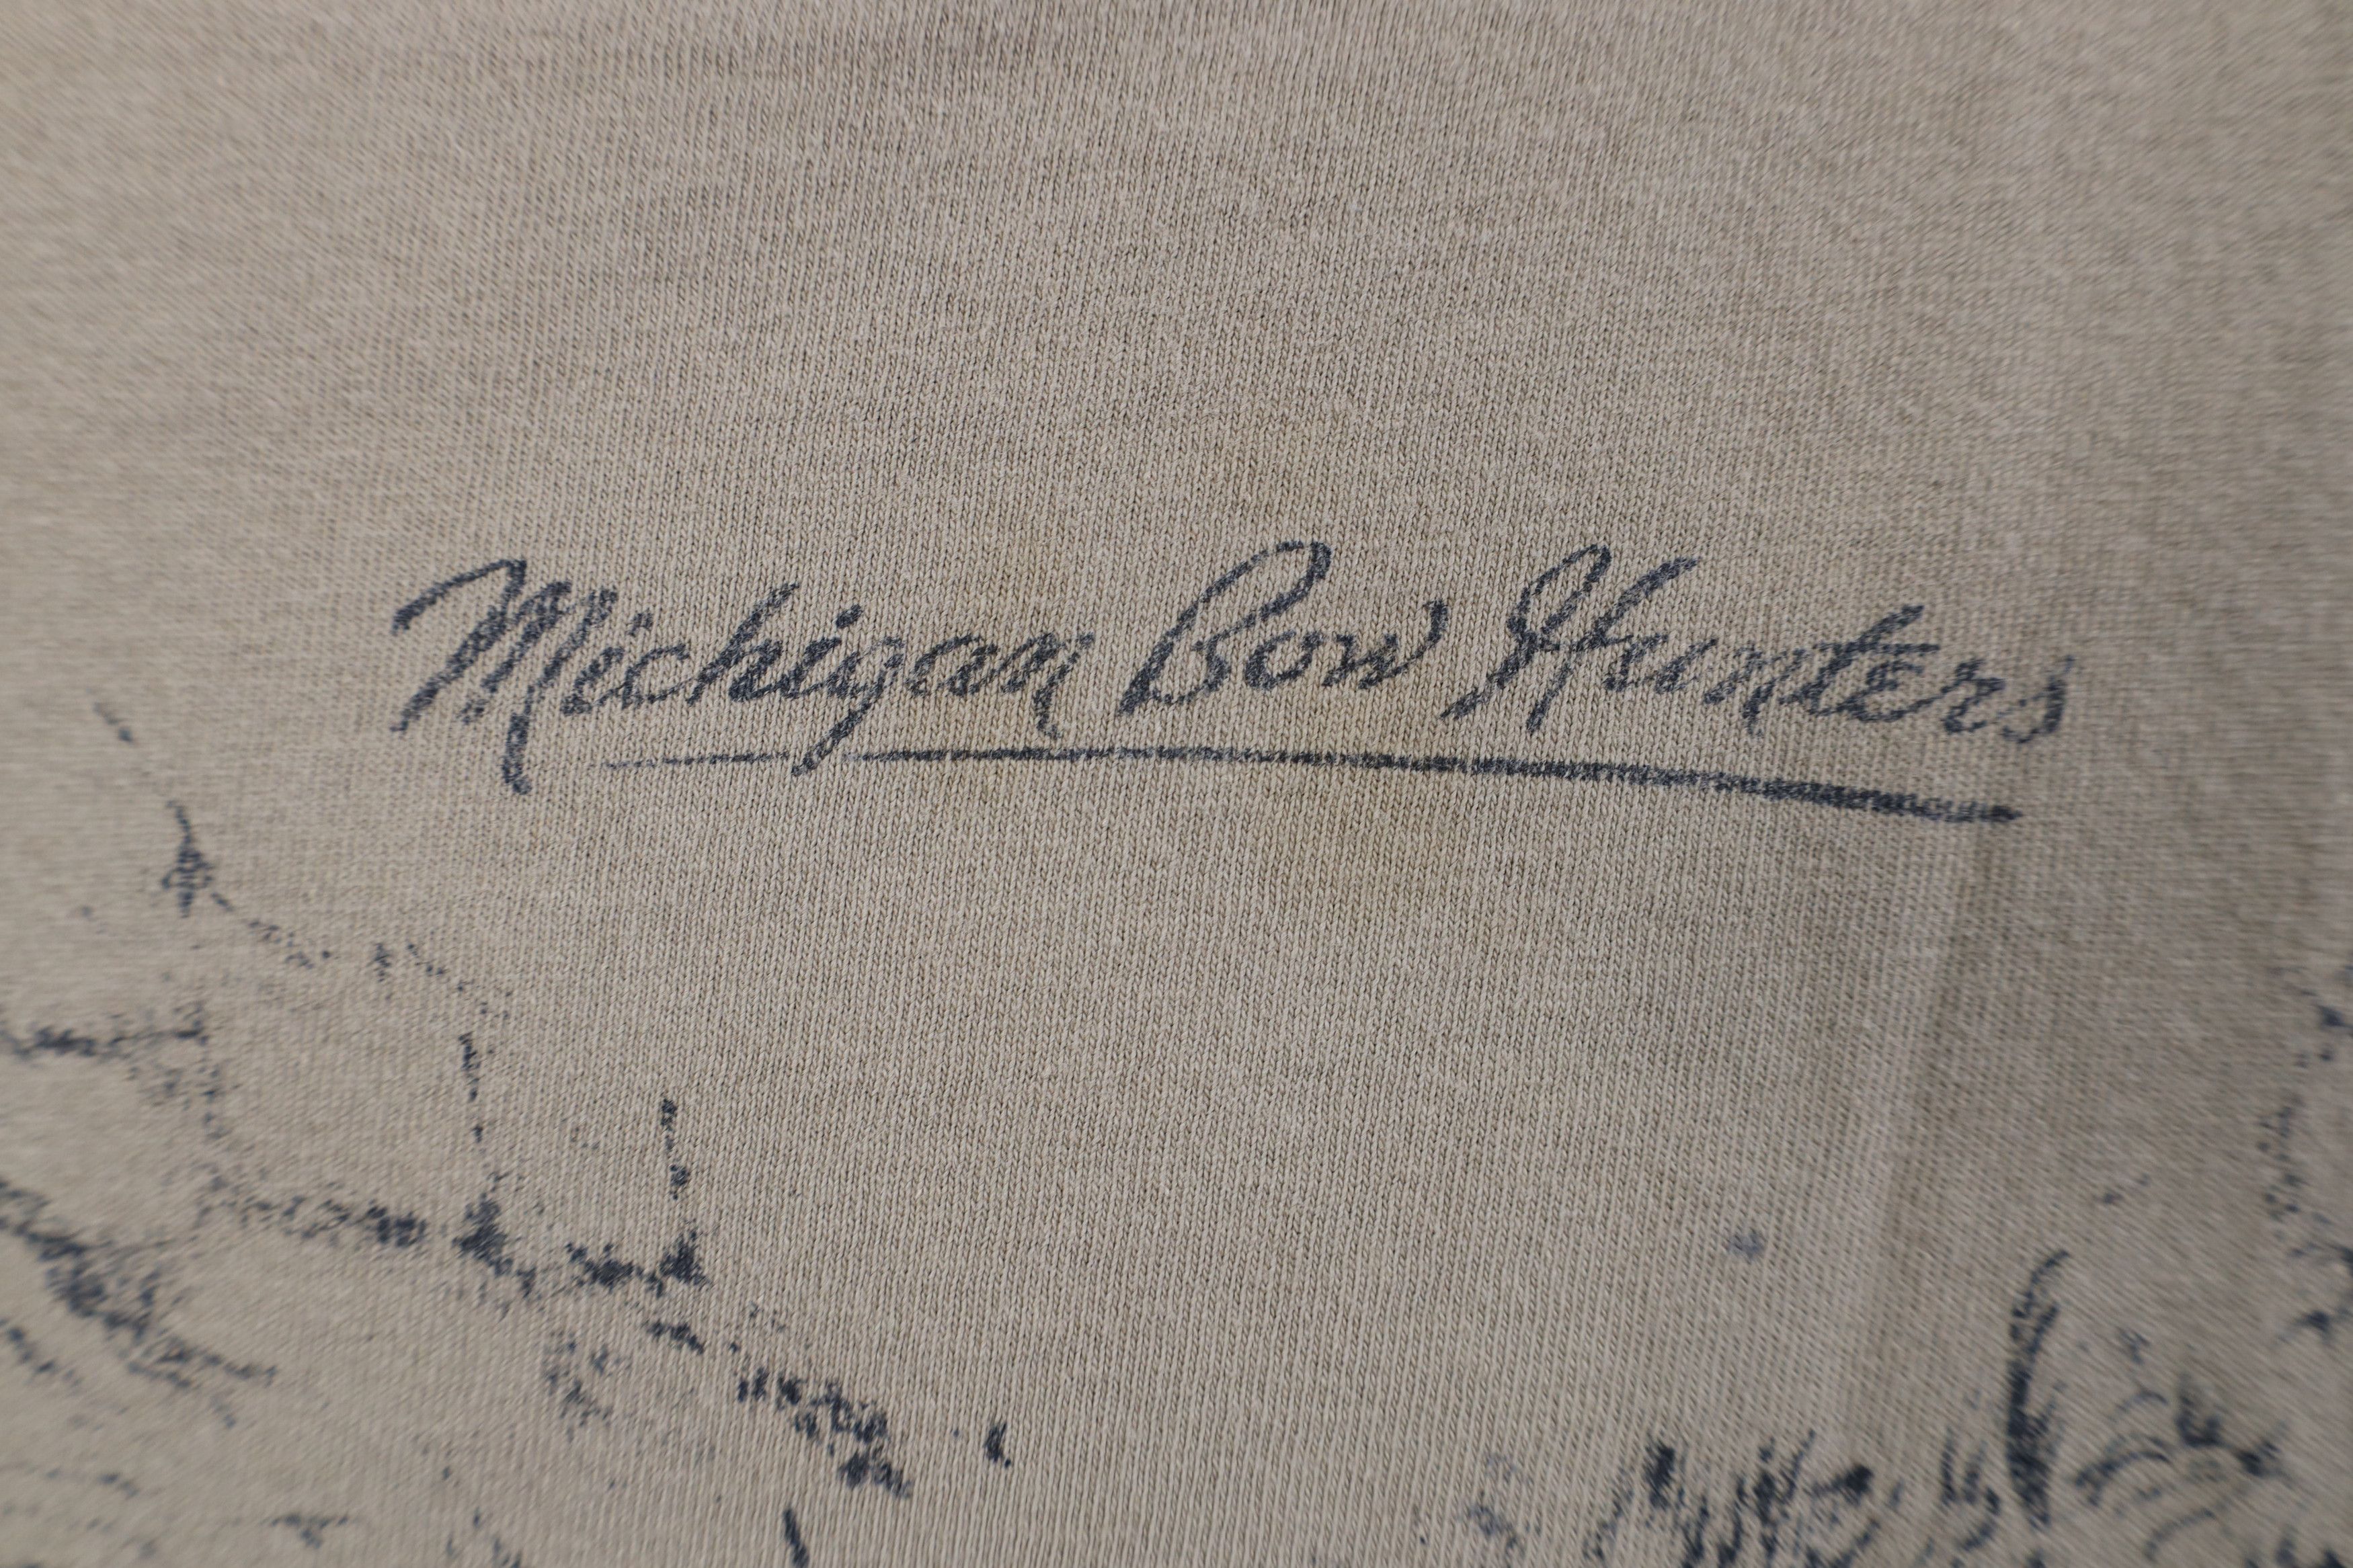 Michigan Bow Hunters